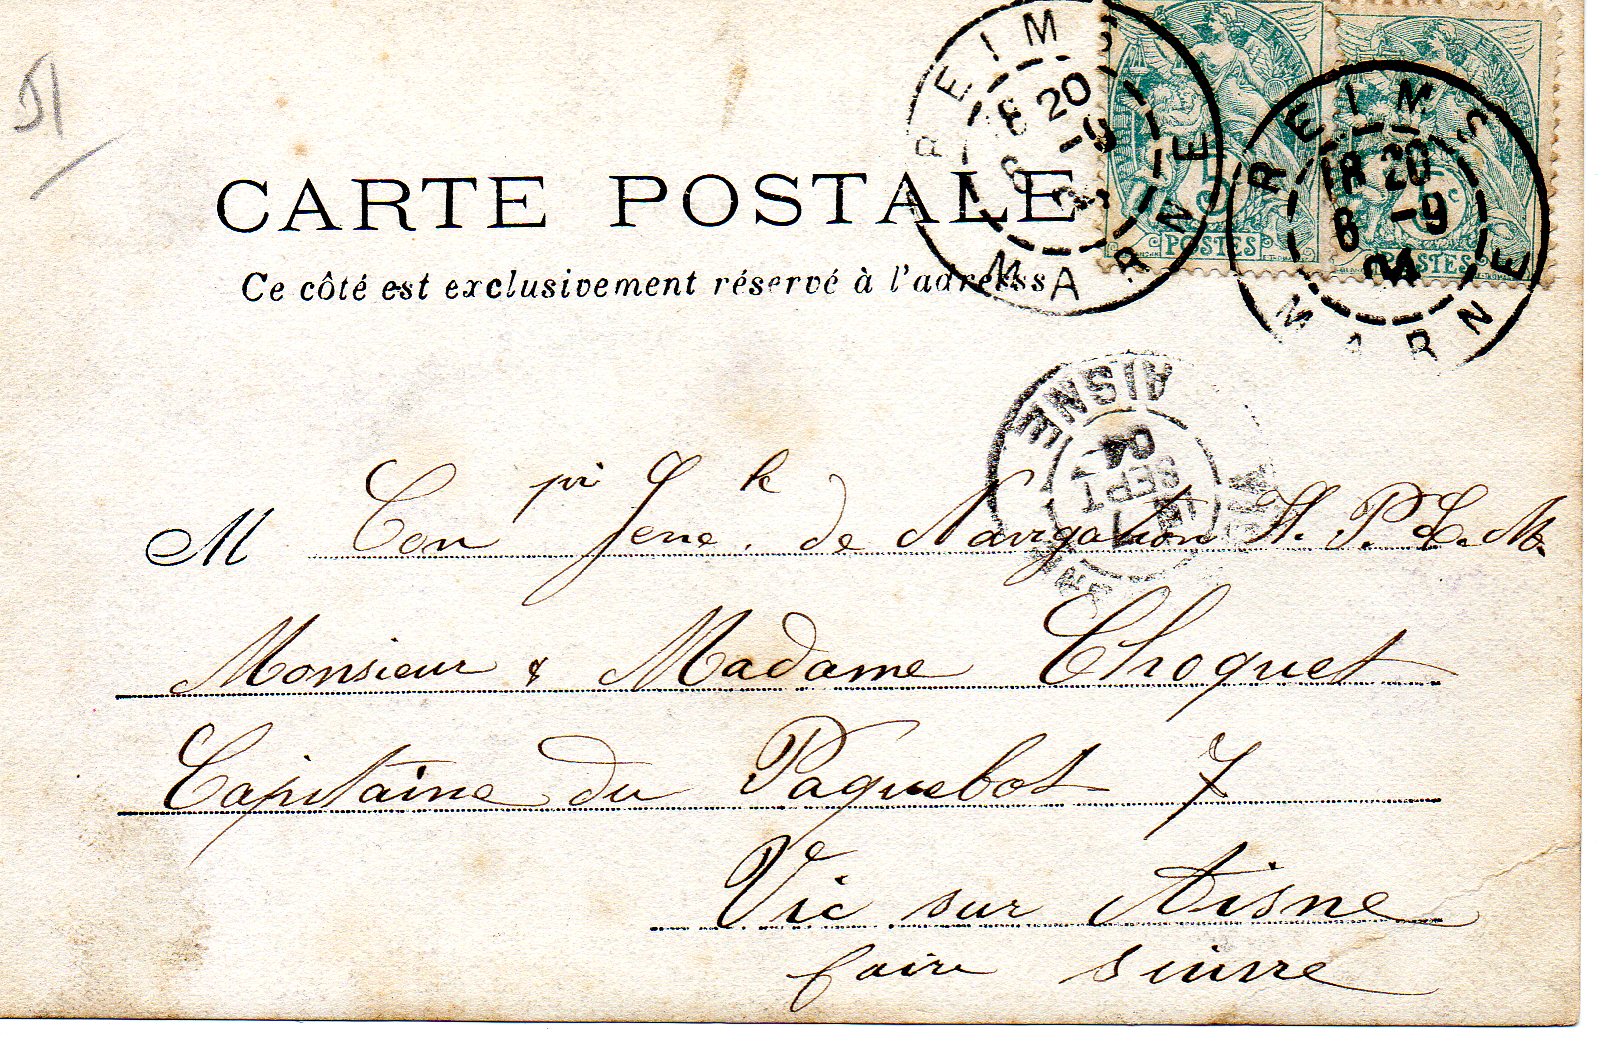 51
CARTE POSTALE
Ce côté est exclusivement réservé à l'adresse
REIMS
MARNE
18 20
6 -9
04
REIMS
MARNE
18 20
6 -9
04
POSTES
POSTES
AISNE
7
SEPT
04
M Con pi G le Jene. de Navigation H. P. L. M.
Monsieur & Madame Choquet
Capitaine du Paquebot 7
Vic sur Aisne
faire suivre